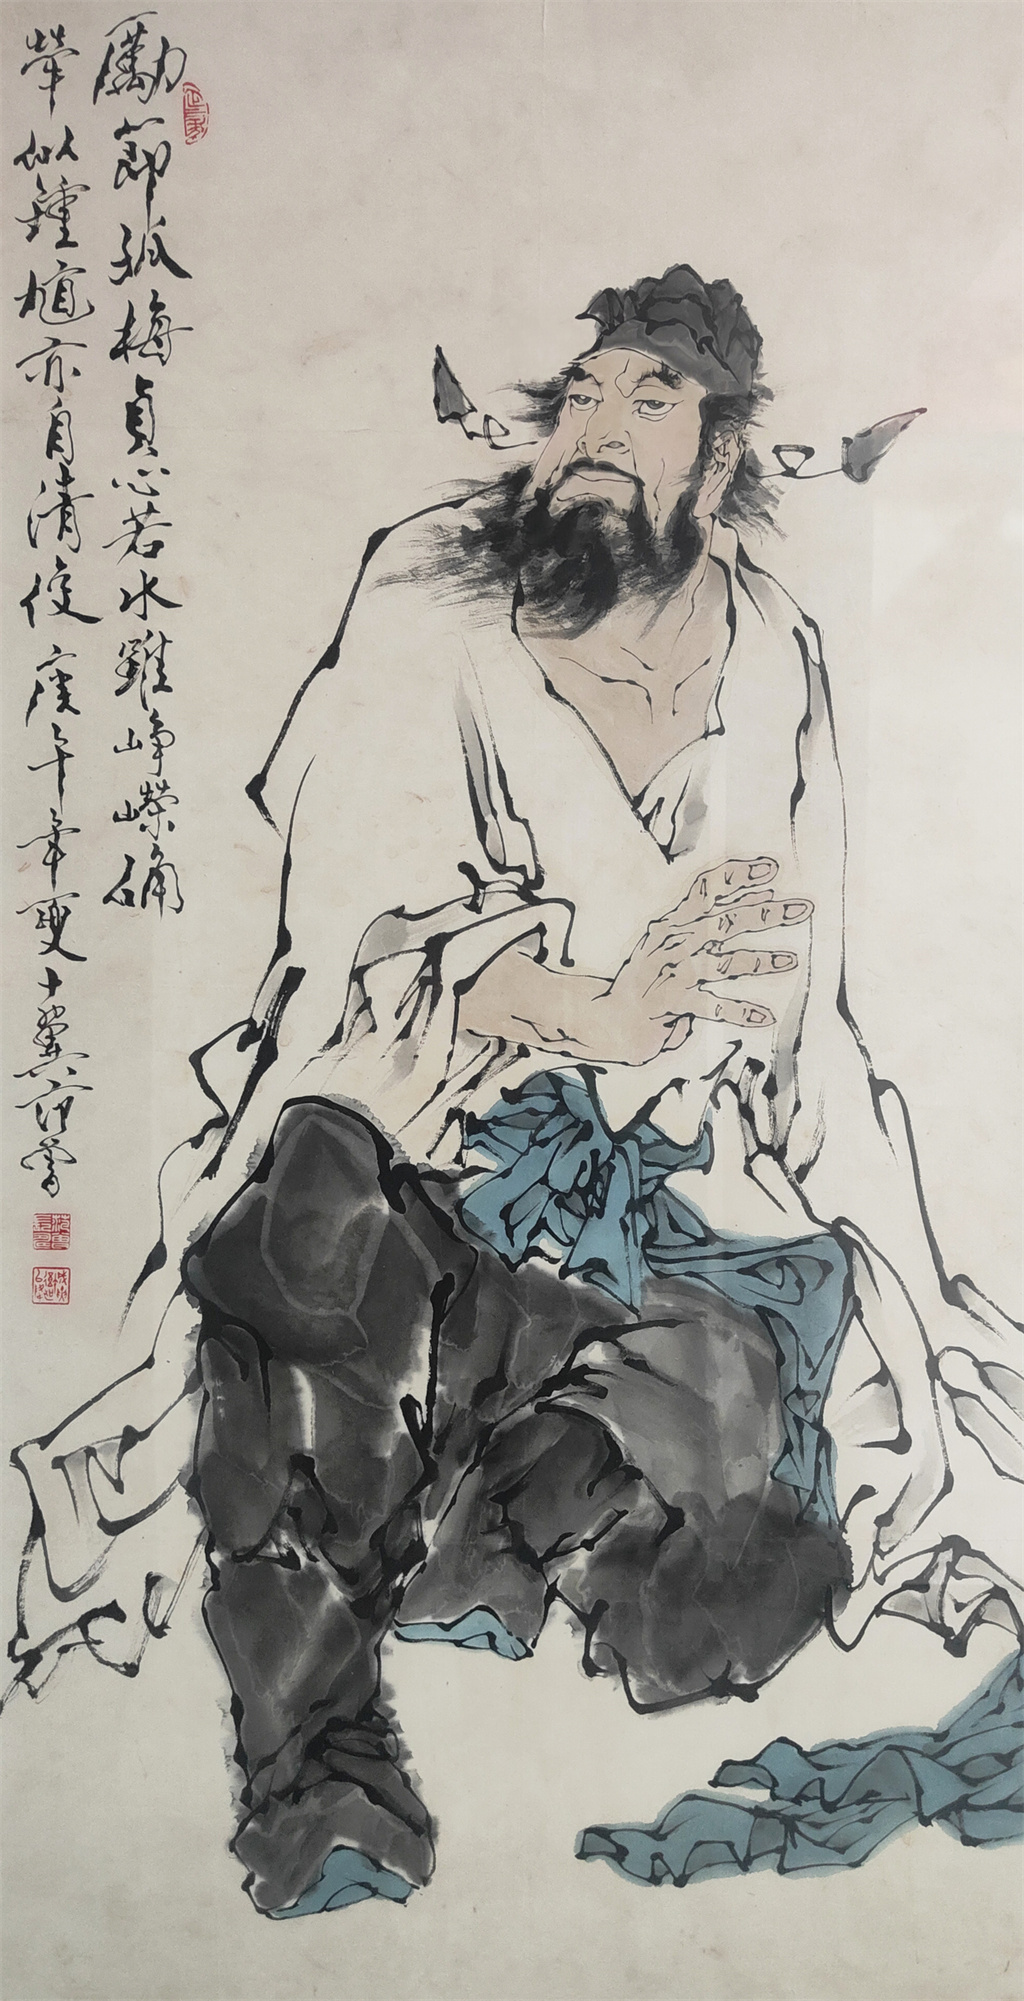 勵節孤梅貞心若水雖崢嶸确
犖似鍾馗亦自清俊庚午年更十翼范曾